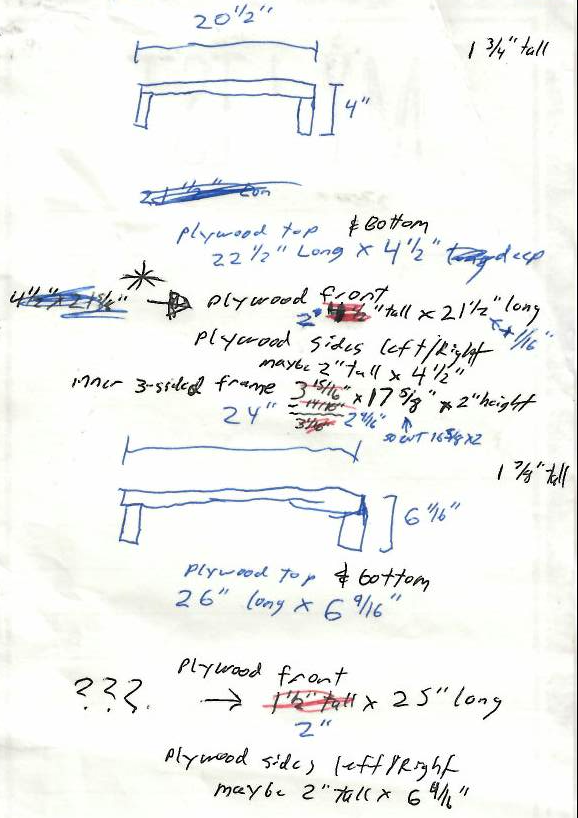 20 1/2"
1 3/4" tall
4"
21 1/2"
plywood top & Bottom
22 1/2" Long x 4 1/2" deep
4 1/2" x 21 5/8"
plywood front
2" "tall x 21 1/2" long
+ 1/16"
plywood sides left/Right
maybe 2" tall x 4 1/2"
inner 3-sided frame 3 15/16" x 17 5/8" x 2" height
24"
so cut 16 5/8 x2
1 7/8" tall
6 1/16"
plywood top & bottom
26" long x 6 9/16"
plywood front
??? → 1 1/2" tall x 25" long
2"
plywood sides left/Right
maybe 2" tall x 6 9/16"